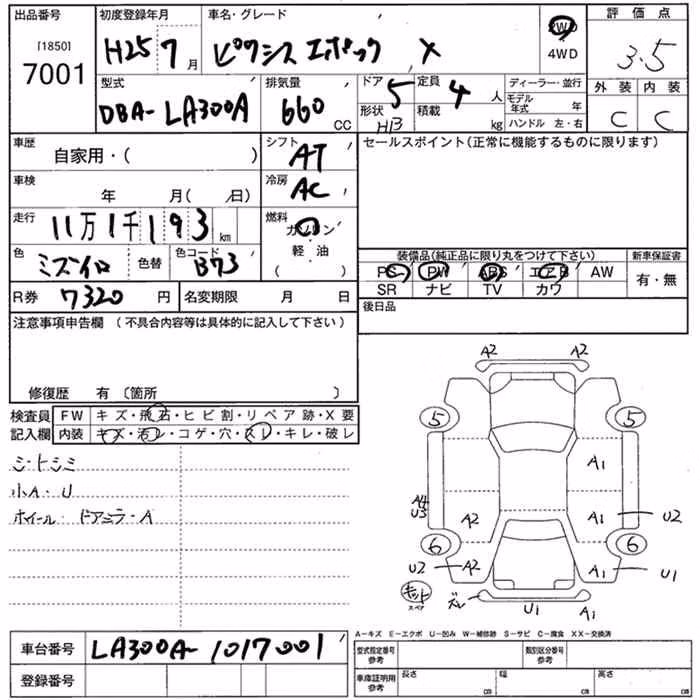 出品番号 初度登録年月 車名・グレード 2WD 評価点
[1850] 7001 H25 7月 ピクシスエポック X 4WD 3.5
型式 排気量 ドア 定員 ディーラー・並行 外装 内装
DBA-LA300A 660 CC 5 4人 モデル年式 年 C C
形状 H13 積載 kg ハンドル 左・右
車歴 シフト セールスポイント(正常に機能するものに限ります)
自家用・( ) AT
車検 冷房
年 月( 日) AC
走行 燃料
11万1千193km ガソリン
色 色替 色コード 軽・油
ミズイロ B73 ( )
装備品(純正品に限り丸をつけて下さい) 新車保証書
PS PW ABS エアB AW 有・無
SR ナビ TV カワ
R券 7320円 名変期限 月 日 後日品
注意事項申告欄 (不具合内容等は具体的に記入して下さい)
修復歴 有 〔箇所 〕
検査員記入欄 FW キズ・飛石・ヒビ割・リペア跡・X要
内装 キズ・汚レ・コゲ・穴・スレ・キレ・破レ
シートシミ
小A・U
ホイール・ドアミラ・A
A2 A2
5 5
A1
A4
U3 A2 A1 U2
6 6
U2 A2 A1 U1
キット スペア ズレ U1
A-キズ E-エクボ U-凹み W-補修跡 S-サビ C-腐食 XX-交換済
車台番号 LA300A-1017001 型式指定番号 参考 類別区分番号 参考
登録番号 車庫証明用 参考 長さ cm 幅 cm 高さ cm